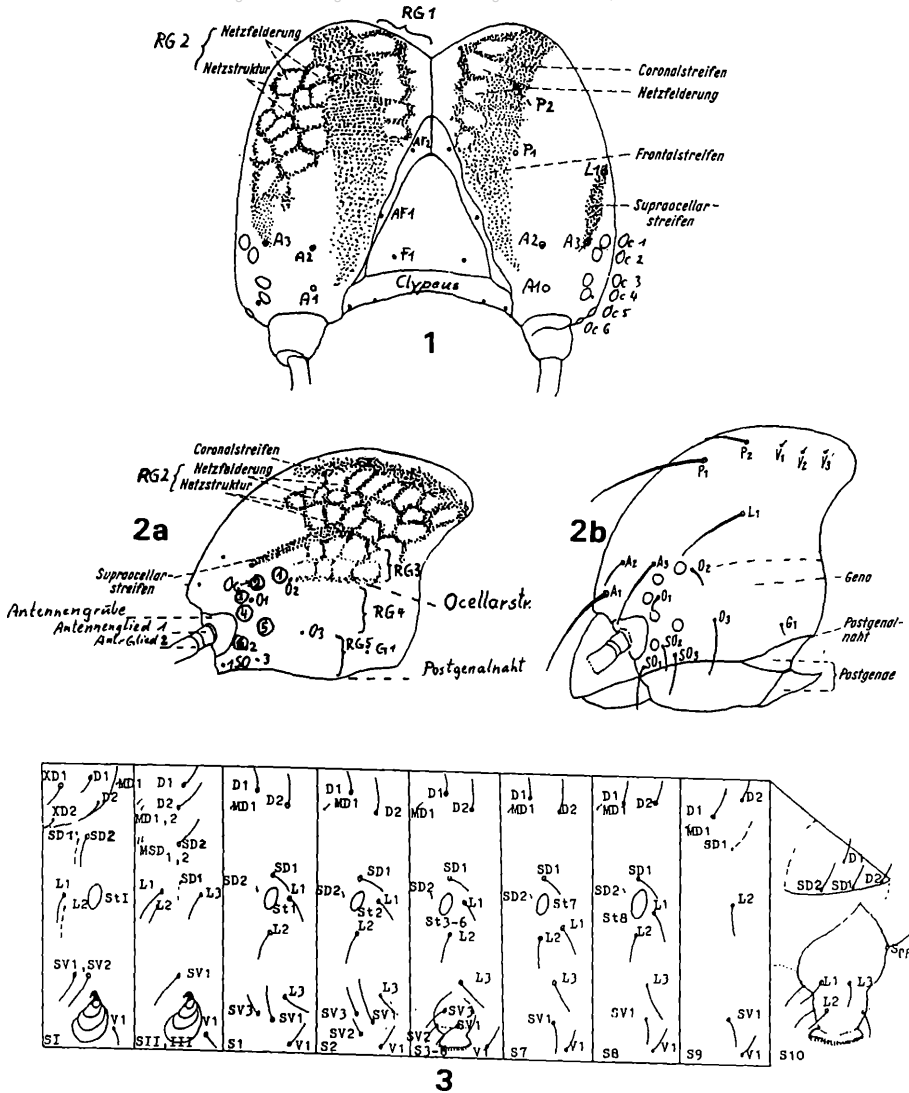 RG1
RG2
Netzfelderung
Netzstruktur
Coronalstreifen
Netzfelderung
P2
P1
Frontalstreifen
L1
Supraocellar-
streifen
AF2
AF1
F1
Clypeus
A3
A2
A1
A2
A3
A1
Oc 1
Oc 2
Oc 3
Oc 4
Oc 5
Oc 6
1
Coronalstreifen
RG2
Netzfelderung
Netzstruktur
2a
Supraocellar-
streifen
Antennengrube
Antennenglied 1
Ant.Glied 2
Oc
1
2
3
4
5
6
O1
O2
O3
RG3
RG4
RG5
G1
Ocellarstr.
1 SO 2 3
Postgenalnaht
2b
P1
P2
V1
V2
V3
L1
A1
A2
A3
O1
O2
O3
SO1
SO2
SO3
G1
Gena
Postgenal-
naht
Postgenae
XD1 D1
D2
XD2
SD1 SD2
L1
L2 StI
SV1,SV2
V1
SI
MD1 D1
D2
MD1,2
MSD1,2 SD2
L1 SD1 L3
L2
SV1
V1
SII,III
D1
MD1 D2
SD1
SD2 L1
St1
L2
L3
SV3 SV1
V1
S1
D1
MD1 D2
SD1
SD2 L1
St2
L2
L3
SV3 SV1
SV2
V1
S2
D1
MD1 D2
SD1
SD2 L1
St3-6
L2
L3
SV3
SV1
SV2
V1
S3-6
D1
MD1 D2
SD1
SD2 St7
L1
L2
L3
SV1
V1
S7
D1
MD1 D2
SD1
SD2
St8 L1
L2
L3
SV1
V1
S8
D1 D2
MD1
SD1
L2
SV1
V1
S9
D1
SD2 SD1 D2
L1 L3
L2
S10
3